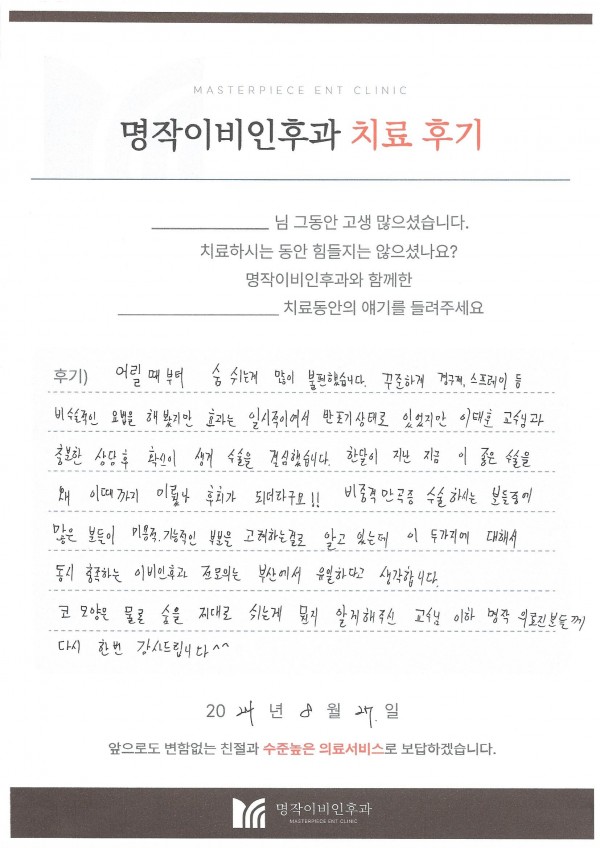 MASTERPIECE ENT CLINIC
명작이비인후과 치료 후기
님 그동안 고생 많으셨습니다.
치료하시는 동안 힘들지는 않으셨나요?
명작이비인후과와 함께한
치료동안의 얘기를 들려주세요
후기) 어릴 때부터 숨 쉬는게 많이 불편했습니다. 꾸준하게 경구제, 스프레이 등
비수술적인 요법을 해 봤지만 효과는 일시적이어서 반포기상태로 있었지만 이태훈 교수님과
충분한 상담 후 확신이 생겨 수술을 결심했습니다. 한달이 지난 지금 이 좋은 수술을
왜 이때까지 미뤘나 후회가 되더라구요!! 비중격만곡증 수술하시는 분들중에
많은 분들이 미용적, 기능적인 부분을 고려하는걸로 알고 있는데 이 두가지에 대해서
동시 충족하는 이비인후과 전문의는 부산에서 유일하다고 생각합니다.
코 모양은 물론 숨을 제대로 쉬는게 뭔지 알게해주신 교수님 이하 명작 의료진분들께
다시 한번 감사드립니다^^
2024년 8월 27.일
앞으로도 변함없는 친절과 수준높은 의료서비스로 보답하겠습니다.
명작이비인후과
MASTERPIECE ENT CLINIC